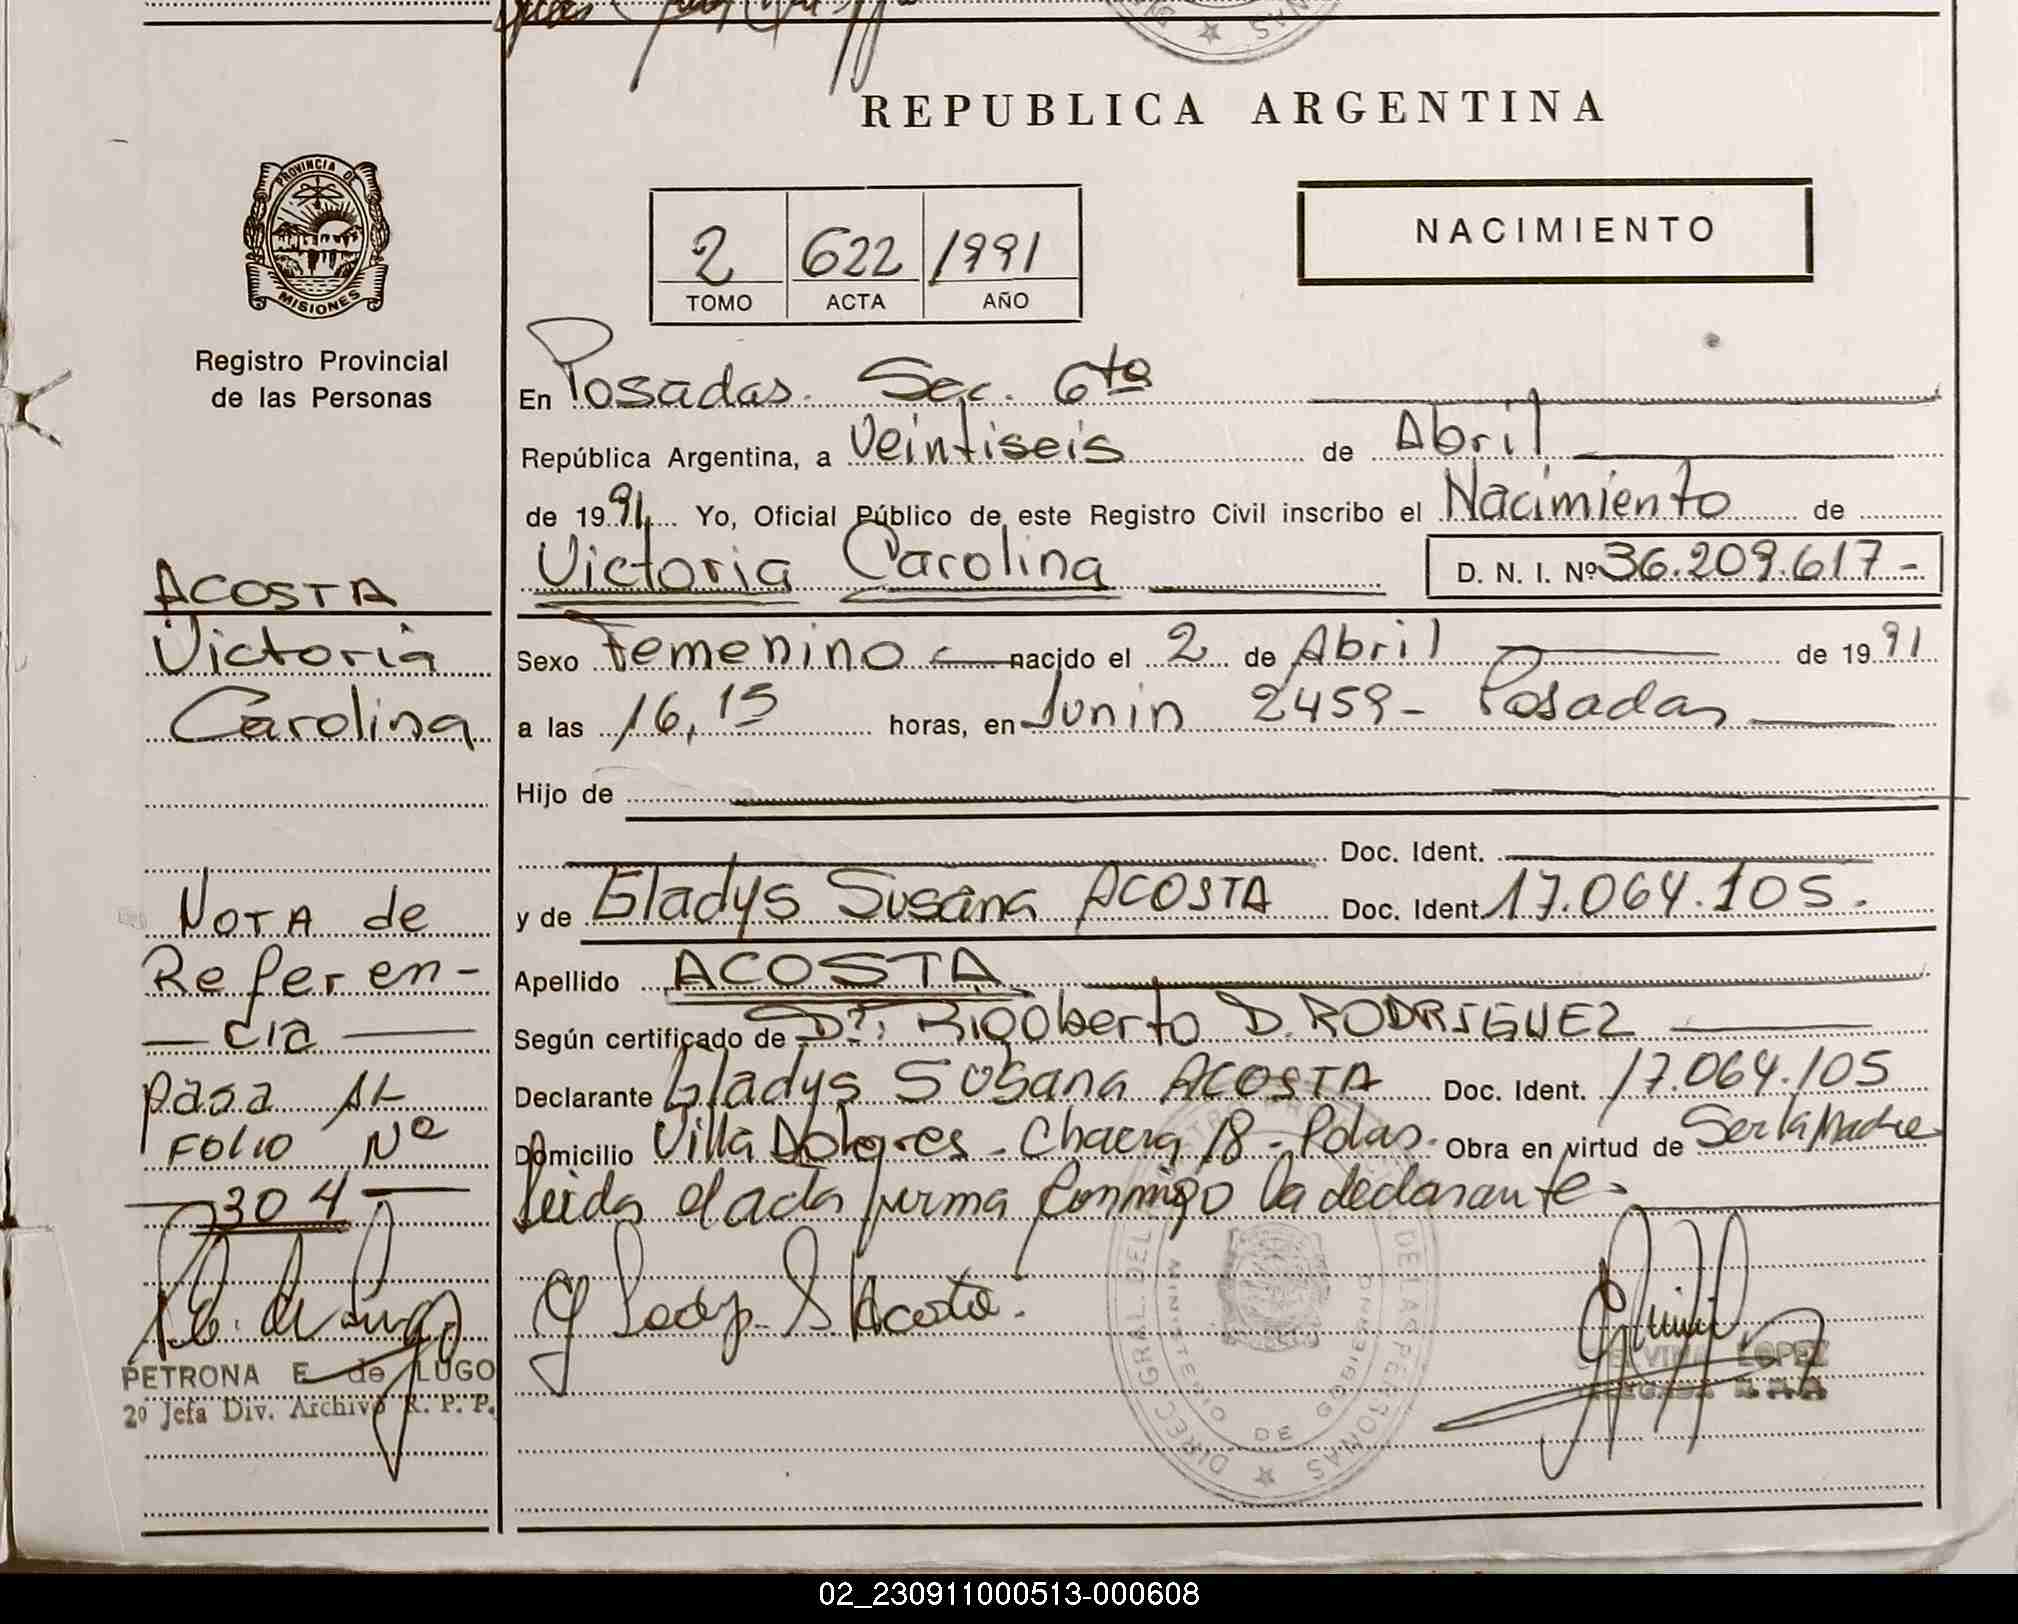 REPUBLICA ARGENTINA
PROVINCIA DE
MISIONES
Registro Provincial
de las Personas
2 622 1991
TOMO ACTA AÑO
NACIMIENTO
En Posadas. Sec. 6ta
República Argentina, a Veintiseis de Abril
de 1991. Yo, Oficial Público de este Registro Civil inscribo el Nacimiento de
Victoria Carolina D. N. I. Nº 36.209.617-
Sexo Femenino nacido el 2 de Abril de 1991
a las 16,15 horas, en Junin 2459- Posadas
Hijo de
Doc. Ident.
y de Gladys Susana ACOSTA Doc. Ident. 17.064.105.
Apellido ACOSTA
Según certificado de Dr. Rigoberto D. RODRIGUEZ
Declarante Gladys Susana ACOSTA Doc. Ident. 17.064.105
Domicilio Villa Dolores - Chacra 18 - Pdas. Obra en virtud de Ser la Madre
Leida el acta firma conmigo la declarante.
Gladys S. Acosta.
ACOSTA
Victoria
Carolina
NOTA de
Referen-
cia
pasa AL
FOLIO Nº
304
PETRONA E. de LUGO
2º Jefa Div. Archivo R. P. P.
LOPEZ
DIREC. GRAL. DEL REGISTRO DE LAS PERSONAS
MINISTERIO DE GOBIERNO
02_230911000513-000608